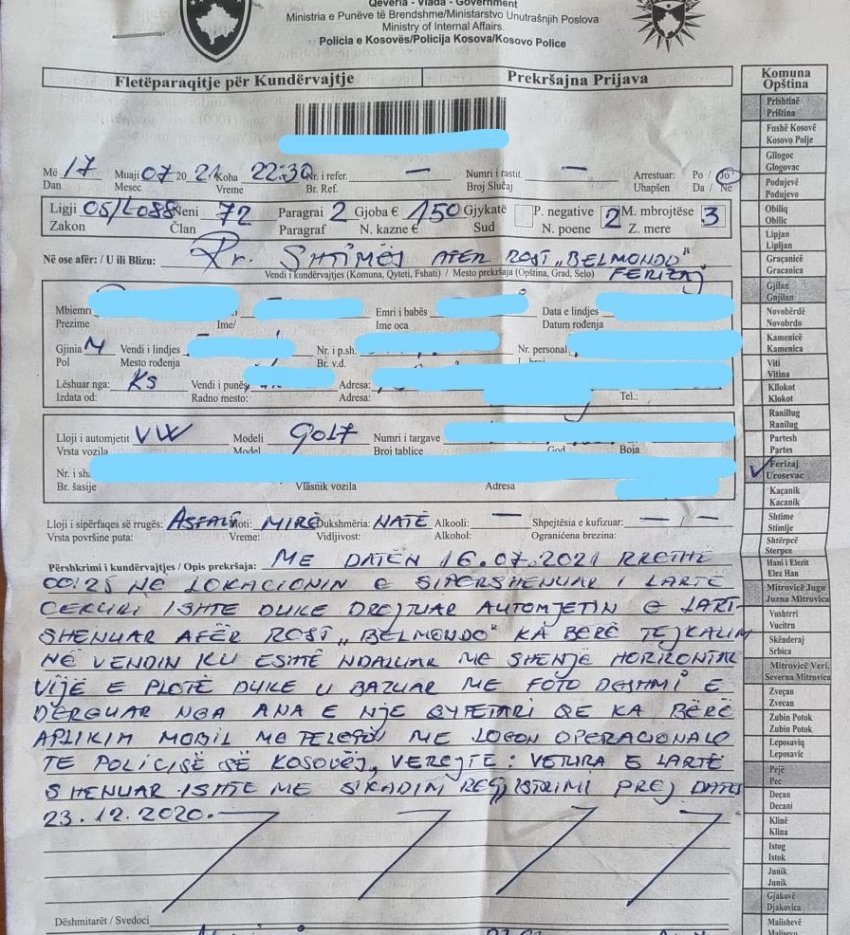 Qeveria - Vlada - Government
Ministria e Punëve të Brendshme/Ministarstvo Unutrašnjih Poslova
Ministry of Internal Affairs
Policia e Kosovës/Policija Kosova/Kosovo Police
Fletëparaqitje për Kundërvajtje Prekršajna Prijava
Më 17 Muaji 07 20 21 Koha 22:30 Nr. i refer. — Numri i rastit — Arrestuar: Po / Jo
Dan Mesec Vreme Br. Ref. Broj Slučaj Uhapšen Da / Ne
Ligji 05/L088 Neni 72 Paragrafi 2 Gjoba € 150 Gjykatë P. negative 2 M. mbrojtëse 3
Zakon Član Paragraf N. kazne € Sud N. poene Z. mere
Në ose afër: / U ili Blizu: Rr. SHTIMËS AFËR REST „BELMONDO"
Vendi i kundërvajtjes (Komuna, Qyteti, Fshati) / Mesto prekršaja (Opština, Grad, Selo) FERIZAJ
Mbiemri Emri i babës Data e lindjes
Prezime Ime/ Ime oca Datum rođenja
Gjinia M Vendi i lindjes Nr. i p.sh. Nr. personal
Pol Mesto rođenja Br. v.d.
Lëshuar nga: KS Vendi i punës Adresa:
Izdata od: Radno mesto: Adresa: Tel.:
Lloji i automjetit VW Modeli GOLF Numri i targave
Vrsta vozila Model Broj tablice God Boja
Nr. i sh
Br. šasije Vlasnik vozila Adresa
Lloji i sipërfaqes së rrugës: ASFALT Moti: MIRË Dukshmëria: NATË Alkooli: — Shpejtësia e kufizuar: — / —
Vrsta površine puta: Vreme: Vidljivost: Alkohol: Ograničena brezina:
Përshkrimi i kundërvajtjes / Opis prekršaja: ME DATËN 16.07.2021 RRETHË
00:25 NË LOKACIONIN E SIPERSHENUAR I LARTË
CEKURI ISHTE DUKE DREJTUAR AUTOMJETIN E LARTË-
SHENUAR AFËR REST „BELMONDO" KA BËRË TEJKALIM
NË VENDIN KU ËSHTË NDALUAR ME SHENJË HORIZONTAL
VIJË E PLOTË DUKE U BAZUAR ME FOTO DESHMI E
DERGUAR NGA ANA E NJË QYTETARI QE KA BËRË
APLIKIM MOBIL ME TELEFON ME LOGON OPERACIONALE
TE POLICISË SË KOSOVËS, VEREJTË: VETURA E LARTË
SHENUAR ISHTE ME SKADIM REGJISTRIMI PREJ DATËS
23.12.2020.
Dëshmitarët / Svedoci
Komuna
Opština
Prishtinë
Priština
Fushë Kosovë
Kosovo Polje
Gllogoc
Glogovac
Podujevë
Podujevo
Obiliq
Obilic
Lipjan
Lipljan
Graçanicë
Gracanica
Gjilan
Gnjilan
Novobërdë
Novobrdo
Kamenicë
Kamenica
Viti
Vitina
Kllokot
Klokot
Ranillug
Ranilug
Partesh
Partes
Ferizaj
Urosevac
Kaçanik
Kacanik
Shtime
Stimlje
Shtërpcë
Sterpce
Hani i Elezit
Elez Han
Mitrovicë Jugu
Juzna Mitrovica
Vushtrri
Vucitrn
Skënderaj
Srbica
Mitrovicë Veri.
Severna Mitrovica
Zveçan
Zvecan
Zubin Potok
Zubin Potok
Leposaviq
Leposavic
Pejë
Pec
Deçan
Decani
Klinë
Klina
Istog
Istok
Junik
Junik
Gjakovë
Djakovica
Malishevë
Malisevo